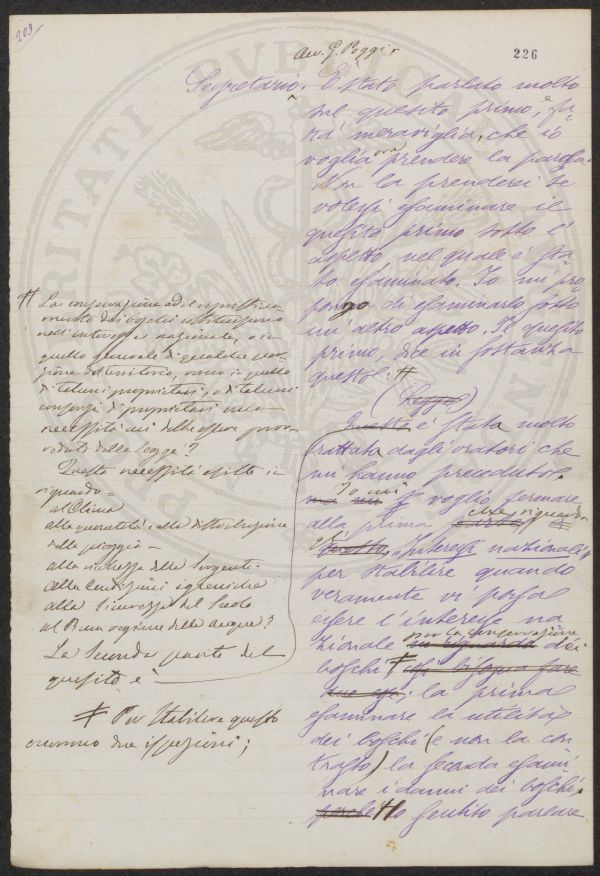 209
226
Avv. G. Poggi.
Segretario. È stato parlato molto
sul quesito primo, e fa-
rà meraviglia, che io
voglia ora prendere la parola.
Non la prenderei se
volessi esaminare il
quesito primo sotto l'
aspetto nel quale è sta-
to esaminato. Io mi pro
pongo di esaminarlo sotto
un altro aspetto. Il quesito
primo, dice in sostanza
questo: #
(Legge)
Questo è stata molto
trattata dagli oratori che
mi hanno preceduto.
ma no Io mi voglio fermare
alla prima parte che riguarda
gl' Interessi nazionali
per stabilire quando
veramente vi possa
essere l'interesse na
zionale in riguardo per la conservazione dei
boschi ≠ Qui bisogna fare
due; la prima
esaminare la utilità
dei boschi (e non la con
trasto) la seconda esami
nare i danni dei boschi.
perchè Ho sentito parlare
# La conservazione ed il
mento dei boschi costituiscono
nell'interesse nazionale, o in
quello generale di qualche por-
zione del territorio, ovvero in quello
di taluni proprietari, o di taluni
consorzi di proprietari una
necessità cui debba esser prov-
veduto dalla legge?
Queste necessità esiste in
riguardo =
al Clima
alla quantità e alla distribuzione
della pioggia =
alla ricchezza delle Sorgenti =
alle Condizioni igieniche
alla Sicurezza del Suolo
al Buon regime delle Acque?
La Seconda parte del
quesito è
≠ Per Stabilire questo
occorrono due ispezioni;